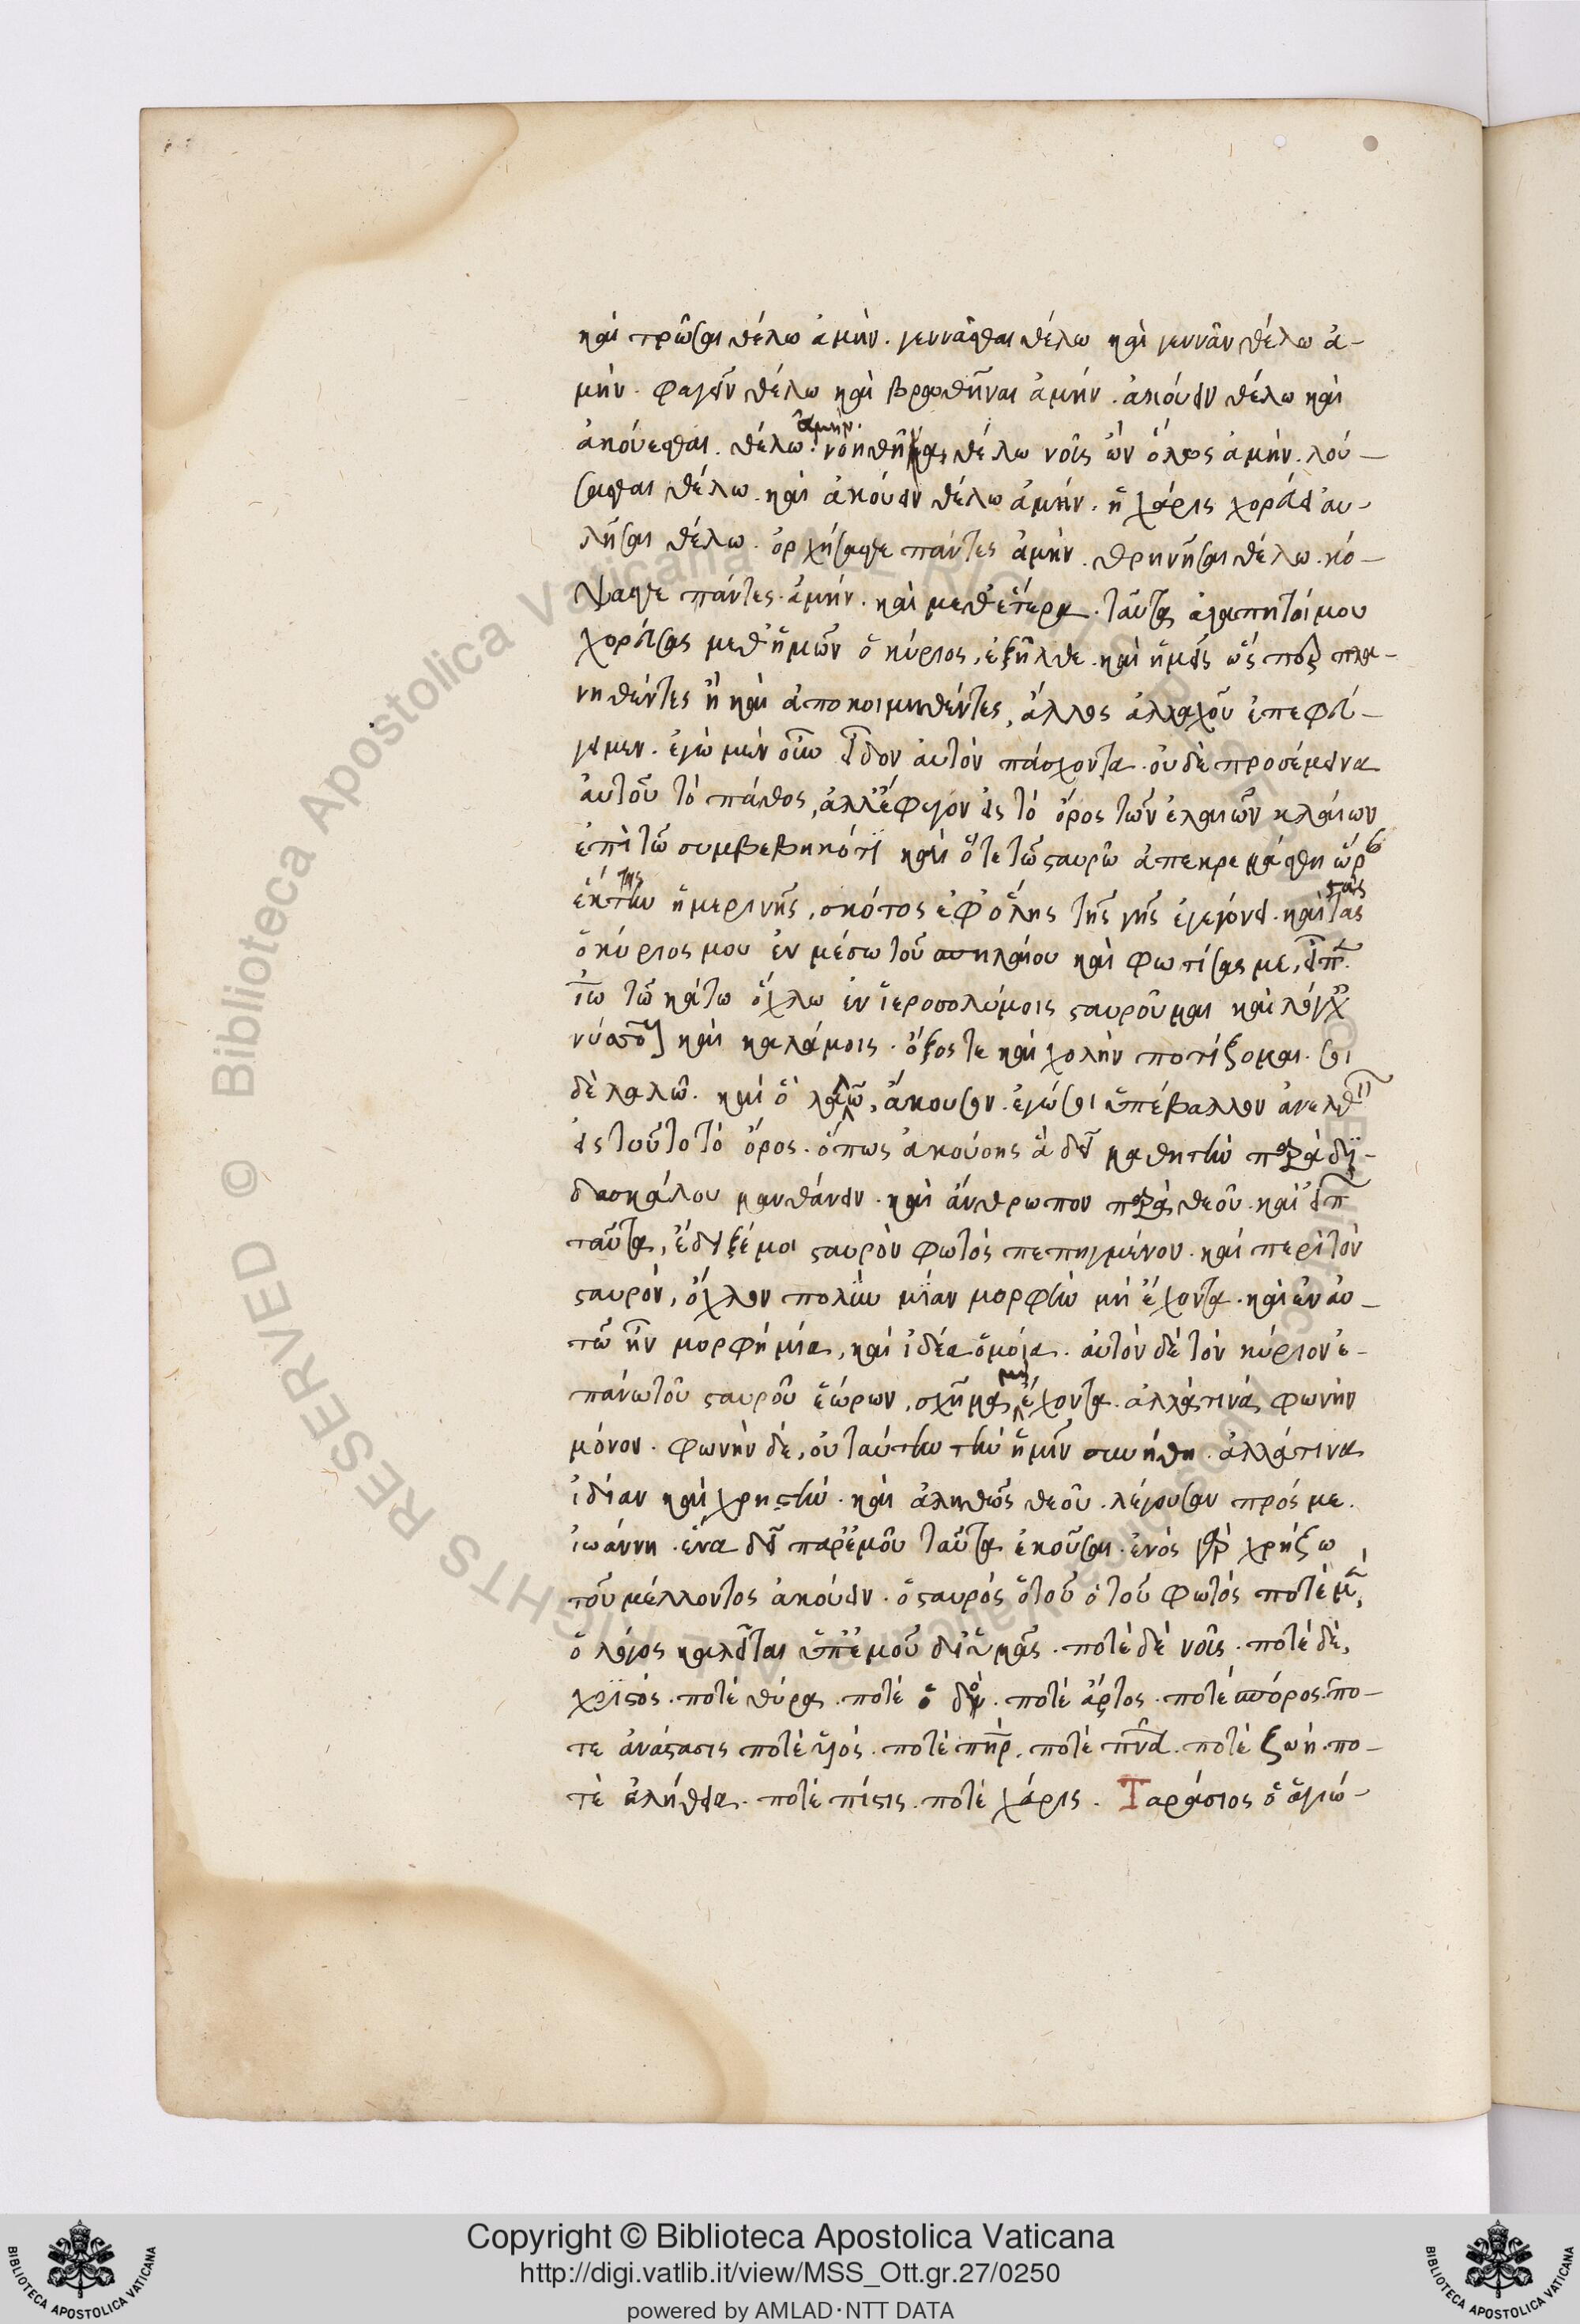 καὶ τρῶσαι θέλω ἀμήν. γεννᾶσθαι θέλω καὶ γεννᾶν θέλω ἀ-
μήν. φαγεῖν θέλω καὶ βρωθῆναι ἀμήν. ἀκούειν θέλω καὶ
ἀκούεσθαι. θέλω ἀμήν. νοηθῆναι θέλω νοῦς ὢν ὅλος ἀμήν. λού-
σασθαι θέλω. καὶ ἀκούειν θέλω ἀμήν. ἡ χάρις χορεύει αυ-
λῆσαι θέλω. ὀρχήσασθε πάντες ἀμήν. θρηνῆσαι θέλω. κό-
ψασθε πάντες. ἀμήν. καὶ μεθ' ἕτερα. ταῦτα ἀγαπητοί μου
χορεύσας μεθ' ἡμῶν ὁ κύριος, ἐξῆλθε. καὶ ἡμεῖς ὥς πλα-
νηθέντες ἢ καὶ ἀποκοιμηθέντες, ἄλλος ἀλλαχοῦ ἐπεφεύ-
γειμεν. ἐγὼ μὲν οὖν εἶδον αὐτὸν πάσχοντα. οὐδὲ προσέμεινα
αὐτοῦ τὸ πάθος, ἀλλ' ἔφυγον εἰς τὸ ὄρος τῶν ἐλαιῶν κλαίων
ἐπὶ τῶ συμβεβηκότϊ καὶ ὅτε τῶ σαυρῶ ἀπεκρεμάσθη ὥρας
ἕκτης ἡμερινῆς, σκότος ἐφ' ὅλης τῆς γῆς ἐγεγόνει. καὶ στὰς
ὁ κύριος μου ἐν μέσω τοῦ σπηλαίου καὶ φωτίσας με, εἶπεν.
ἰω τῶ κάτω ὄχλω ἐν ἱεροσολύμοις σταυροῦμαι καὶ λόγχ
νύσσομαι καὶ καλάμοις. ὄξος τε καὶ χολὴν ποτίζομαι. σοι
δὲ λαλῶ. καὶ ὃ λαλῶ, ἄκουσον. ἐγώ σοι ὑπέβαλλον ἀνελθεῖν
εἰς τοῦτο τὸ ὄρος. ὅπως ἀκούσης ἃ δεῖ μαθητὴν παρὰ δι-
δασκάλου μανθάνειν. καὶ ἄνθρωπον παρὰ θεοῦ. καὶ εἰπὼν
ταῦτα, ἔδειξέ μοι σταυρὸν φωτὸς πεπηγμένον. καὶ περὶ τὸν
σταυρόν, ὄχλον πολὺν μίαν μορφὴν μὴ ἔχοντα. καὶ ἐν αυ-
τῶ ἦν μορφὴ μία, καὶ ἰδέα ὁμοία. αὐτὸν δὲ τὸν κύριον ἐ-
πάνω τοῦ σταυροῦ ἑώρων, σχῆμα μὴ ἔχοντα. ἀλλά τινα φωνὴν
μόνον. φωνὴν δέ, οὐ ταύτην τὴν ἡμῖν συνήθη. ἀλλά τινα
ἰδίαν καὶ χρηστὴν. καὶ ἀληθῶς θεοῦ. λέγουσαν πρός με.
ἰωάννη. ἕνα δεῖ παρ' ἐμοῦ ταῦτα ἀκοῦσαι. ἑνὸς γὰρ χρήζω
τοῦ μέλλοντος ἀκούειν. ὁ σταυρὸς ὁ τοῦ ὁ τοῦ φωτὸς ποτὲ μὲν,
ὁ λόγος καλεῖται ὑπ' ἐμοῦ δι' ὑμᾶς. ποτὲ δὲ νοῦς. ποτὲ δὲ,
χριστός. ποτὲ θύρα. ποτὲ ὁδός. ποτὲ ἄρτος. ποτὲ σπόρος. πο-
τε ἀνάστασις ποτὲ υἱός. ποτὲ πηρ. ποτὲ πνα. ποτὲ ζωή. πο-
τὲ ἀλήθεια. ποτὲ πίστις. ποτὲ χάρις. Ταράσιος ὁ ἁγιώ-
Copyright © Biblioteca Apostolica Vaticana
http://digi.vatlib.it/view/MSS_Ott.gr.27/0250
powered by AMLAD·NTT DATA